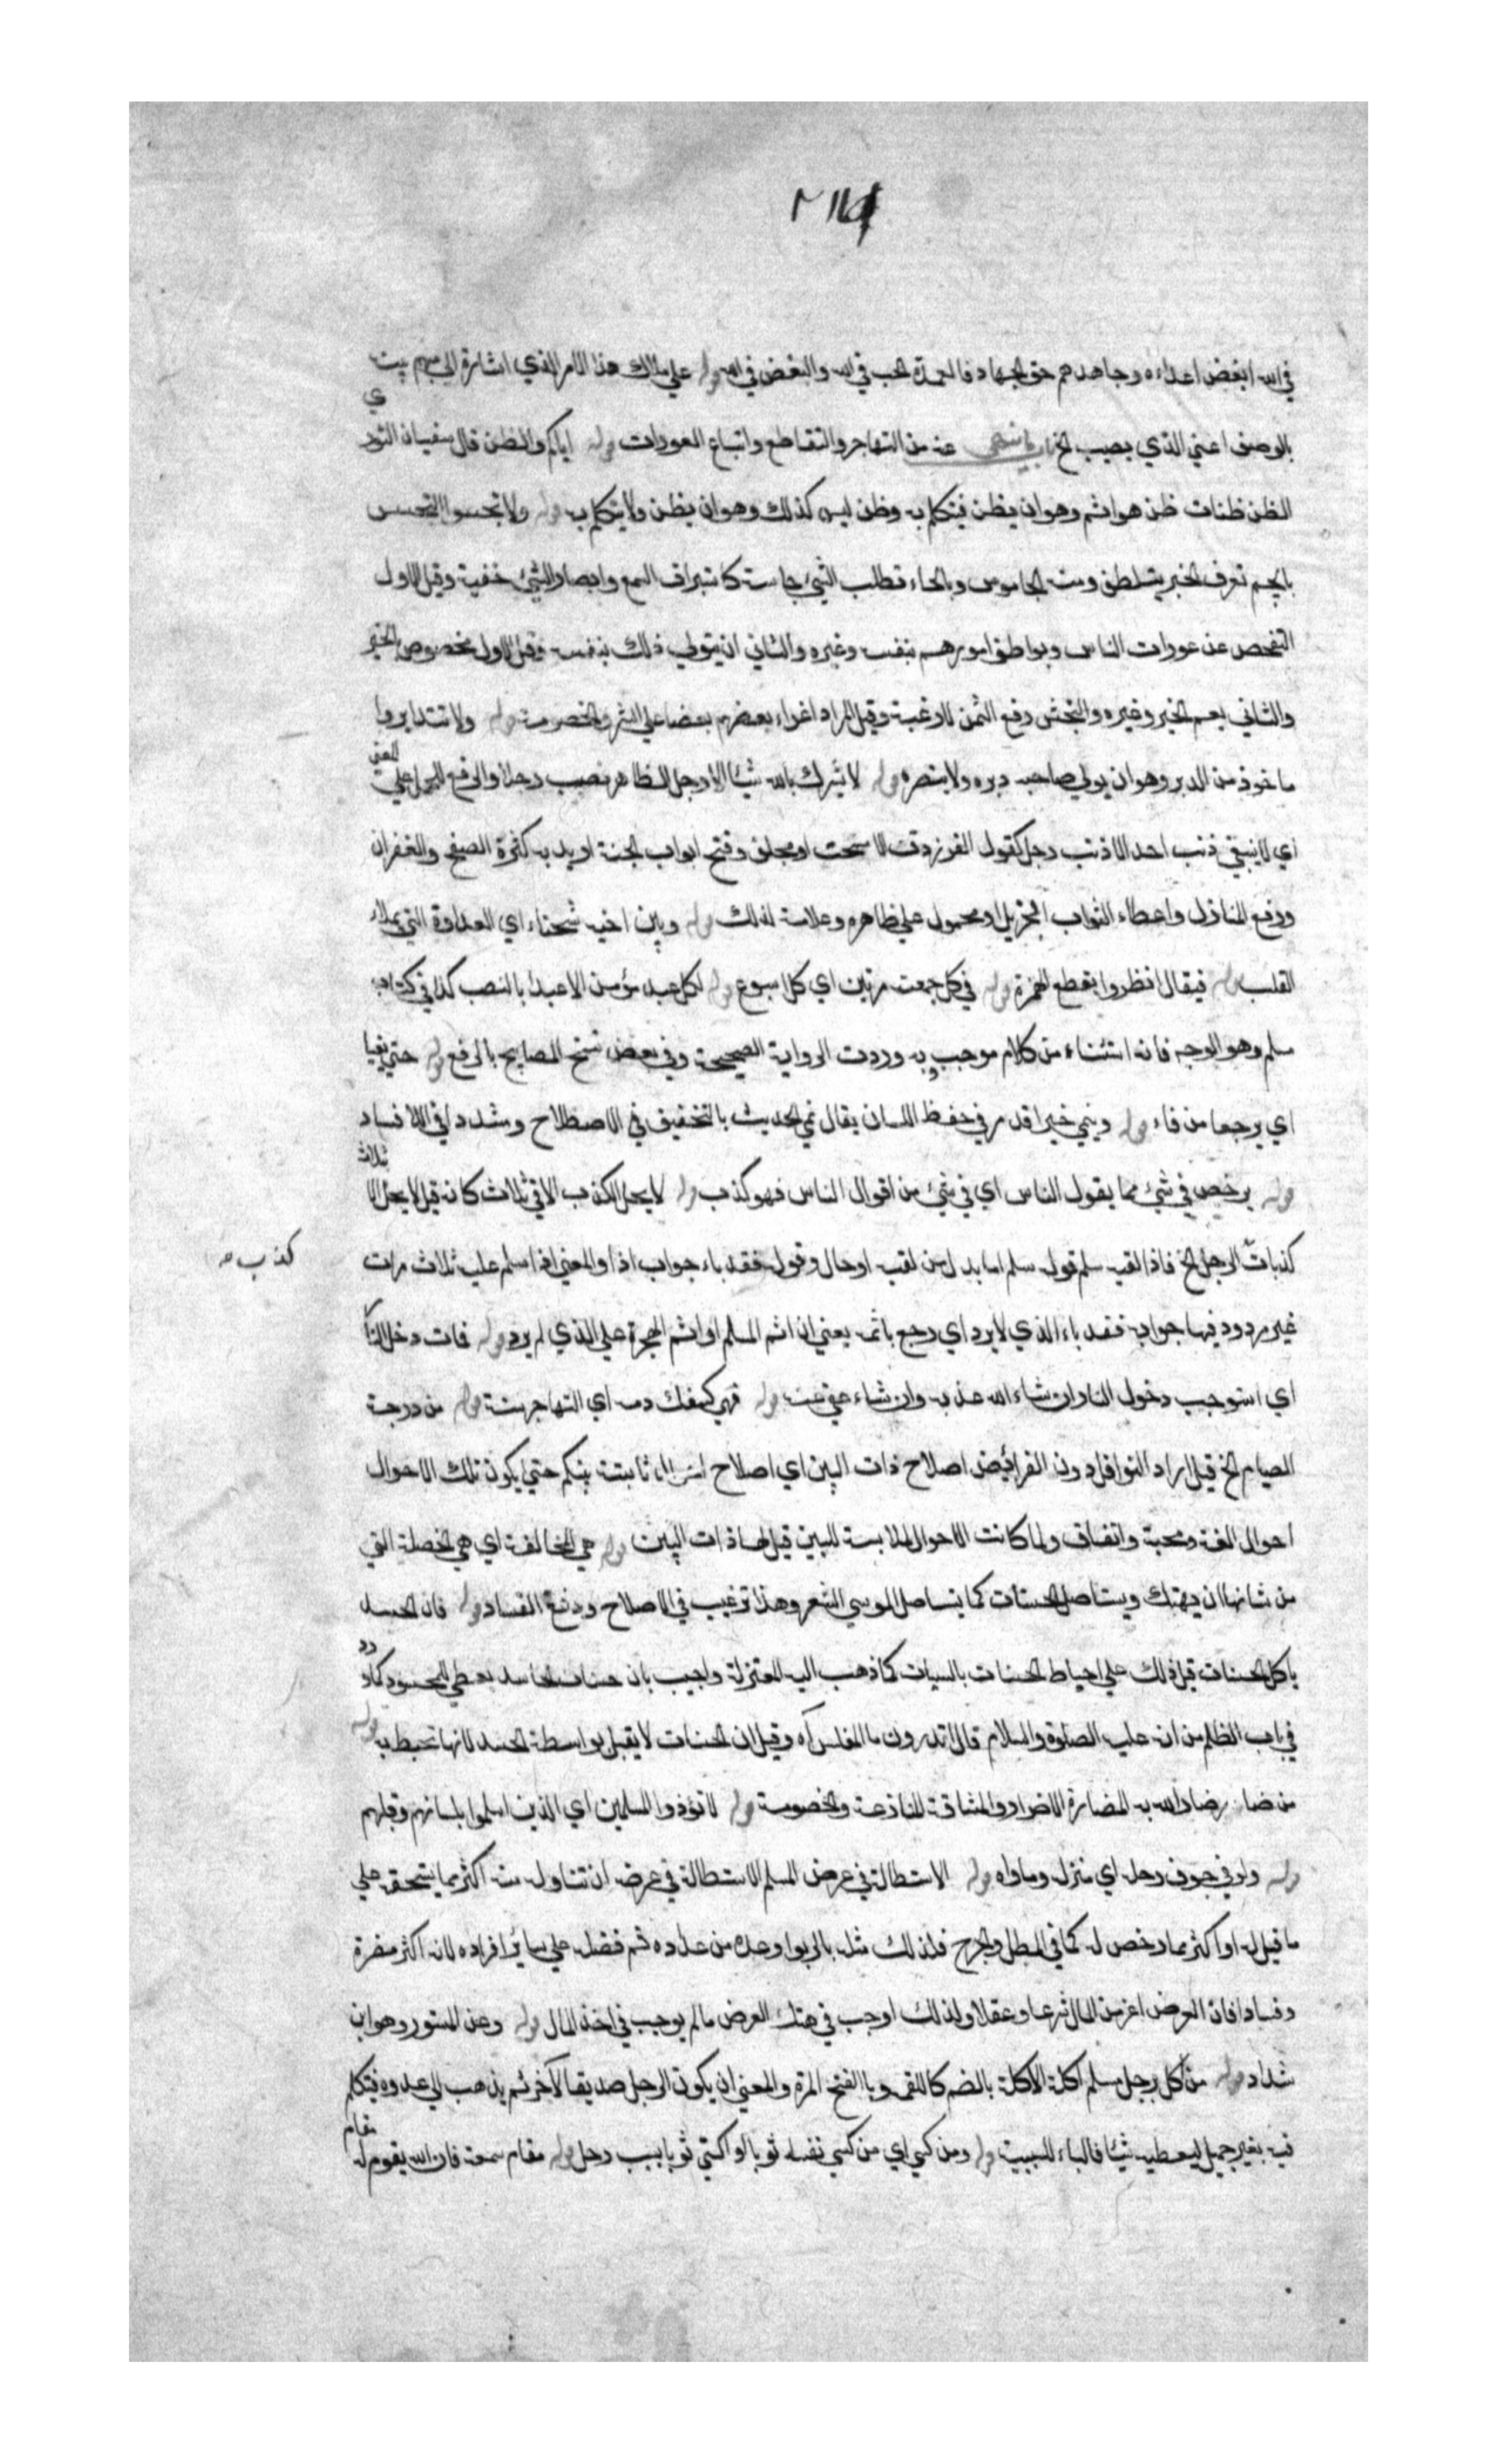 في الله ابغض اعداءه وجاهدهم حق الجهاد فالعمدة الحب في الله والبغض في الله قوله علي ملاك هذا الامر الذي اشارة الي مبهم بينه
بالوصف اعني الذي يصيب الخ باب ما ينهي عنه من التهاجر والتقاطع واتباع العورات قوله اياكم والظن قال سفيان الثوري
الظن ظنان ظن هو اثم وهو ان يظن فيتكلم به وظن ليس كذلك وهو ان يظن ولا يتكلم به قوله ولا تجسسوا التجسس
بالجيم تعرف الخبر بتلطف ومنه الجاسوس وبالحاء تطلب الشيء بحاسة كاستراق السمع وابصار الشيء خفية وقيل الاول
التفحص عن عورات الناس وبواطن امورهم بنفسه وغيره والثاني ان يتولي ذلك بنفسه وقيل الاول مخصوص بالخير
والثاني يعم الخير وغيره والنجش رفع الثمن للا رغبة وقيل المراد اغراء بعضهم بعضا علي الشر والخصومة قوله ولا تتدابروا
ماخوذ من الدبر وهو ان يولي صاحبه دبره ولا ينصره قوله لا يشرك بالله شيئا الا رجل الظاهر نصب رجلا والرفع للحمل علي المعني
اي لا يبقي ذنب احد الا ذنب رجل كقول الفرزدق الا مسحت او مجلف وفتح ابواب الجنة اريد به كثرة الصفح والغفران
ورفع المنازل واعطاء الثواب الجزيل او محمول علي ظاهره وعلامة لذلك قوله وبين اخيه شحناء اي العداوة التي يملاء
القلب قوله فيقال انظروا بقطع الهمزة قوله في كل جمعة مرتين اي كل اسبوع قوله لكل عبد مؤمن الا عبدا بالنصب كذا في كتاب
مسلم وهو الوجه فانه استثناء من كلام موجب وبه وردت الرواية الصحيحة وفي بعض نسخ المصابيح بالرفع قوله حتي يفيا
اي يرجعا من فاء قوله وينمي خيرا قد مر في حفظ اللسان يقال نمي الحديث بالتخفيف في الاصطلاح ومشددا في الافساد
قوله يرخص في شيء مما يقول الناس اي في شيء من اقوال الناس فهو كذب قوله لا يحل الكذب الا في ثلاث كانه قيل لا يحل الا ثلاث
كذبات الرجل الخ فاذا لقيه سلم قوله سلم اما بدل من لقيه او حال وقوله فقد باء جواب اذا والمعني اذا سلم عليه ثلاث مرات
كذب
غير مردود فيها جوابه فقد باء الذي لا يرد اي رجع باثمه يعني ان اثم المسلم او اثم الهجرة علي الذي لم يرد قوله فمات دخل النار
اي استوجب دخول النار ان شاء الله عذبه وان شاء عفي عنه قوله فهو كسفك دمه اي التهاجر سنة قوله من درجة
الصيام الخ قيل اراد النوافل دون الفرائض اصلاح ذات البين اي اصلاح ثابتة بينكم حتي يكون تلك الاحوال
احوال الفة ومحبة واتفاق ولما كانت الاحوال ملابسة للبين قيل لها ذات البين قوله هي الحالقة اي هي الخصلة التي
من شانها ان يهتك ويستاصل الحسنات كما يتساصل الموسي الشعر وهذا ترغيب في الاصلاح ودفع الفساد قوله فان الحسد
ياكل الحسنات قيل ذلك علي احباط الحسنات بالسيات كما ذهب اليه المعتزلة واجيب بان حسنات الحاسد يعطي للمحسود كما ورد
في باب الظلم من انه عليه الصلوة والسلام قال اتدرون ما المفلس اه وقيل ان الحسنات لا يقبل بواسطة الحسد لا انها تحبط به قوله
من ضار ضار الله به المضارة الاضرار والمشاقة المنازعة والخصومة قوله لا تؤذوا المسلمين اي الذين اسلموا بلسانهم وقلبهم
قوله ولو في جوف رحله اي منزله وماواه قوله الاستطالة في عرض المسلم الاستطالة في عرضه ان تتناول منه اكثر مما يستحقه علي
ما قيل له او اكثر مما رخص له كما في المطل والجرح فلذلك مثله بالربوا وعده من عداده ثم فضله علي سائر افراده لانه اكثر مضرة
وفسادا فان العرض اعز من المال شرعا وعقلا ولذلك اوجب في هتك العرض ما لم يوجب في اخذ المال قوله وعن المستورد وهو ابن
شداد قوله من اكل برجل مسلم اكلة الاكلة بالضم كاللقمة وبالفتح المرة والمعني ان يكون الرجل صديقا لآخر ثم يذهب الي عدوه فيتكلم
فيه بغير جميل ليعطيه شيئا فالباء للسببية قوله ومن كسي اي من كسي نفسه ثوبا او اكتسي ثوبا بسبب رجل قوله مقام سمعة فان الله يقوم له مقام